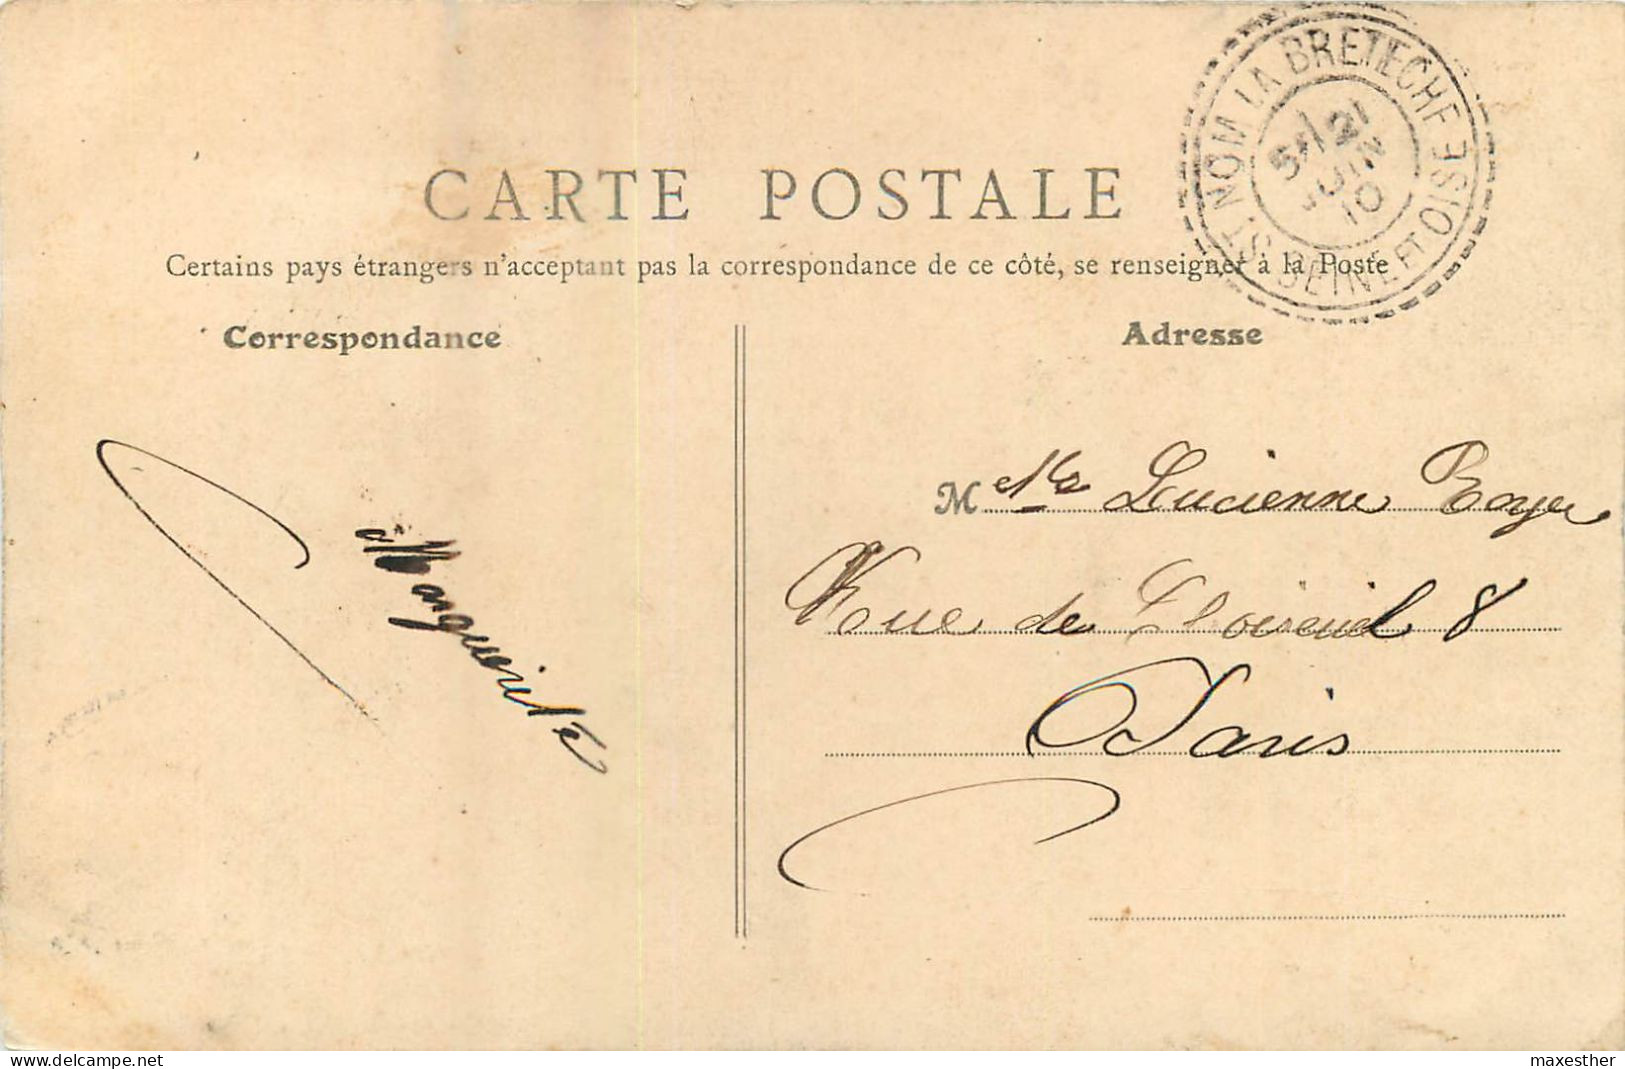 CARTE POSTALE
Certains pays étrangers n'acceptant pas la correspondance de ce côté, se renseigner à la Poste
Correspondance
Adresse
ST. NOM LA BRETECHE
SEINE ET OISE
21
JUIN
10
Marguerite
Melle Lucienne Royer
Rue de 8
Paris
delcampe.net
maxesther